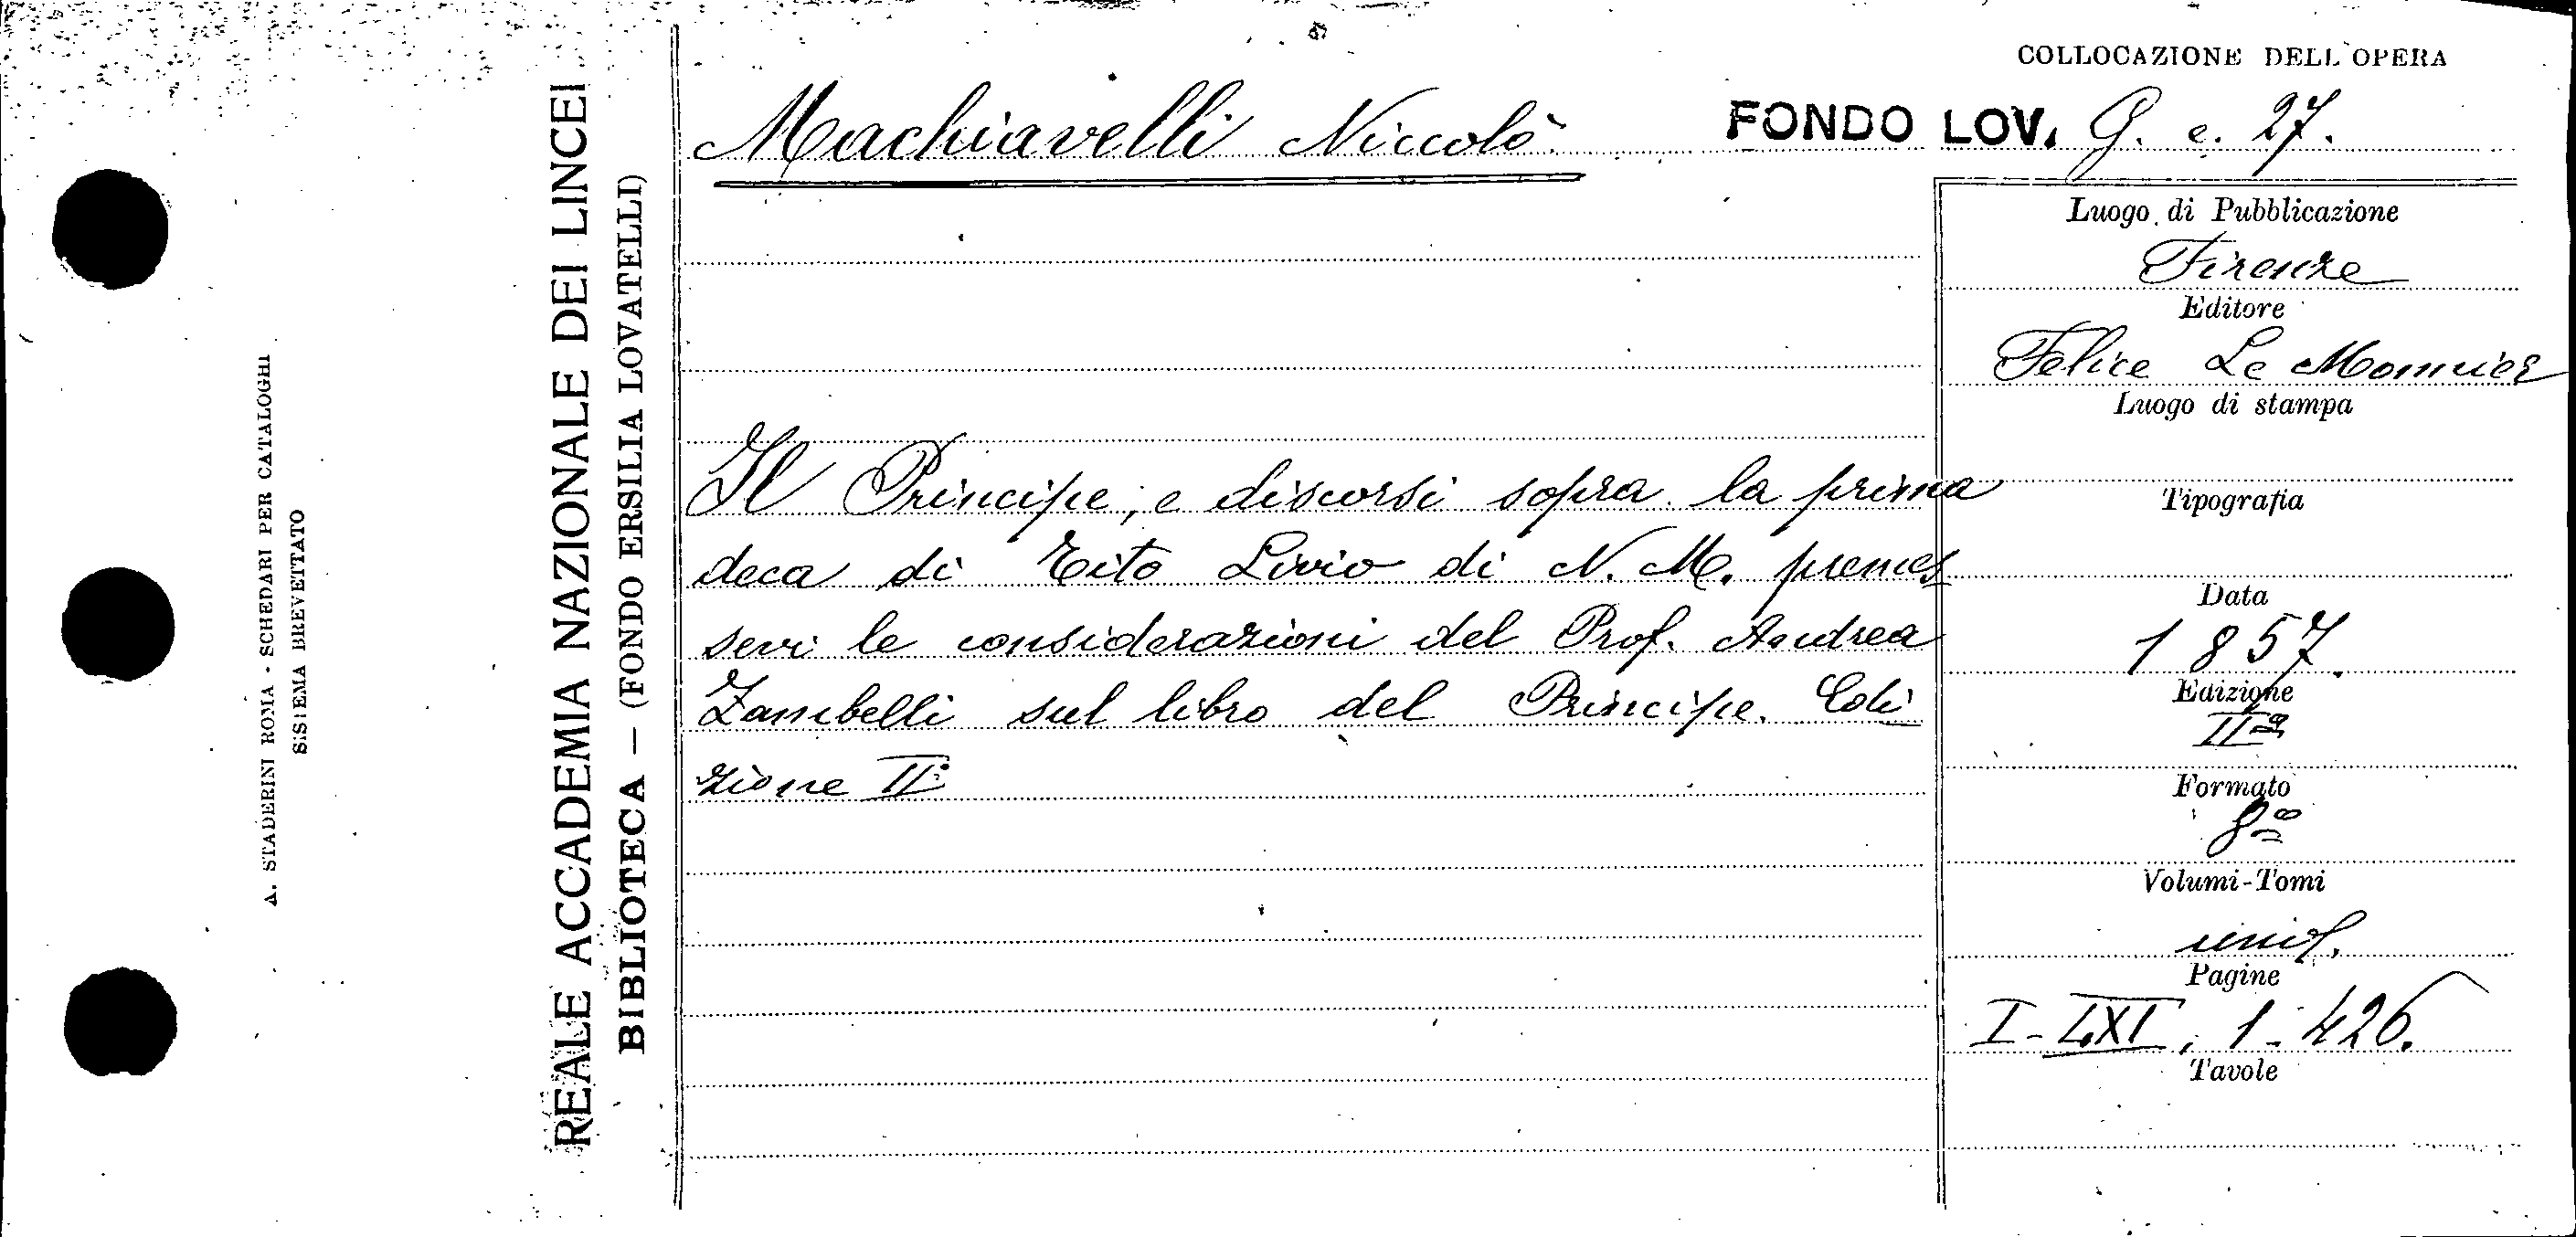 A. STADERINI ROMA - SCHEDARI PER CATALOGHI
SISTEMA BREVETTATO
REALE ACCADEMIA NAZIONALE DEI LINCEI
BIBLIOTECA — (FONDO ERSILIA LOVATELLI)
COLLOCAZIONE DELL'OPERA
Machiavelli Niccolò
FONDO LOV. G. e. 27.
Il Principe, e discorsi sopra la prima
deca di Tito Livio di N. M. premes
sevi le considerazioni del Prof. Andrea
Zambelli sul libro del Principe. Edi
zione II.
Luogo di Pubblicazione
Firenze
Editore
Felice Le Monnier
Luogo di stampa
Tipografia
Data
1857.
Edizione
IIa
Formato
8o
Volumi-Tomi
Pagine
I-LXI, 1-426.
Tavole